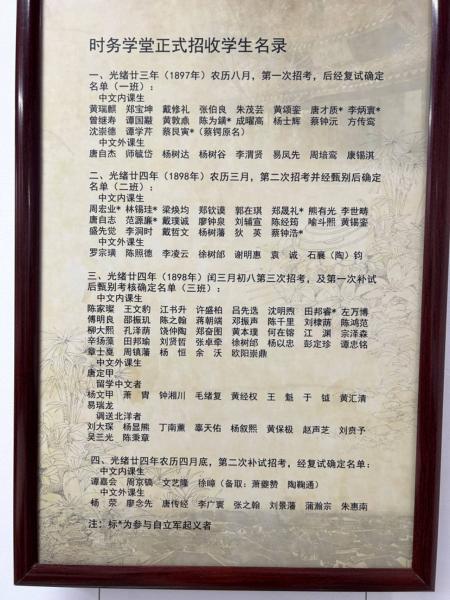 时务学堂正式招收学生名录
一、光绪廿三年（1897年）农历八月，第一次招考，后经复试确定
名单（一班）：
中文内课生
黄瑞麒 郑宝坤 戴修礼 张伯良 朱茂芸 黄颂銮 唐才质* 李炳寰*
曾继寿 谭国黻 黄敦鼎 陈为鐄* 成曜高 杨士辉 蔡钟沅 方传鸾
沈崇德 谭学芹 蔡艮寅*（蔡锷原名）
中文外课生
唐自杰 师毓岱 杨树达 杨树谷 李渭贤 易凤先 周培鸾 康锡淇
二、光绪廿四年（1898年）农历三月，第二次招考并经甄别后确定
名单（二班）：
中文内课生
周宏业* 林锡珪* 梁焕均 郑钦谟 郭在琪 郑晟礼* 熊有光 李世畴
唐自志 范源廉* 戴璞诚 廖钟泉 刘辅宣 陈经筠 喻斗熙 黄锡銮
盛先觉 李洞时 戴哲文 杨树藩 狄 英 蔡钟浩*
中文外课生
罗宗璜 陈照德 李凌云 徐树邰 谢明惠 袁 诚 石襄（陶）钧
三、光绪廿四年（1898年）闰三月初八第三次招考，及第一次补试
后甄别考核确定名单（三班）：
中文内课生
陈家璨 王文豹 江书升 许盛柏 吕先选 沈明煦 田邦睿* 左万博
傅明良 邵振玑 陈之翰 蒋朝端 邓振声 陈千里 刘棣荫 陈鸿范
柳大熙 孔泽荫 饶仲陶 郑奋图 黄本璞 何在镕 江 渊 宗泽森
辛扬藻 田邦瑜 刘贤哲 张卓牵 徐树邰 杨以忠 彭定珍 谭忠铭
章士戛 周镇藩 杨 恒 余 沃 欧阳崇鼎
中文外课生
唐定甲
留学中文者
杨文甲 萧 胄 钟湘川 毛绪复 黄经权 王 魁 于 钺 黄汇清
易瑞龙
调送北洋者
刘大琛 杨显熊 丁南薰 辜天佑 杨叙熙 黄保极 赵声芝 刘贲予
吴兰光 陈秉章
四、光绪廿四年农历四月底，第二次补试招考，经复试确定名单：
中文内课生
谭嘉会 周京镐 文艺隆 徐嶂（备取：萧夔赞 陶鞠通）
中文外课生
杨 荣 廖念先 唐传经 李广寰 张之翰 刘景藩 蒲瀚宗 朱惠南
注：标*为参与自立军起义者